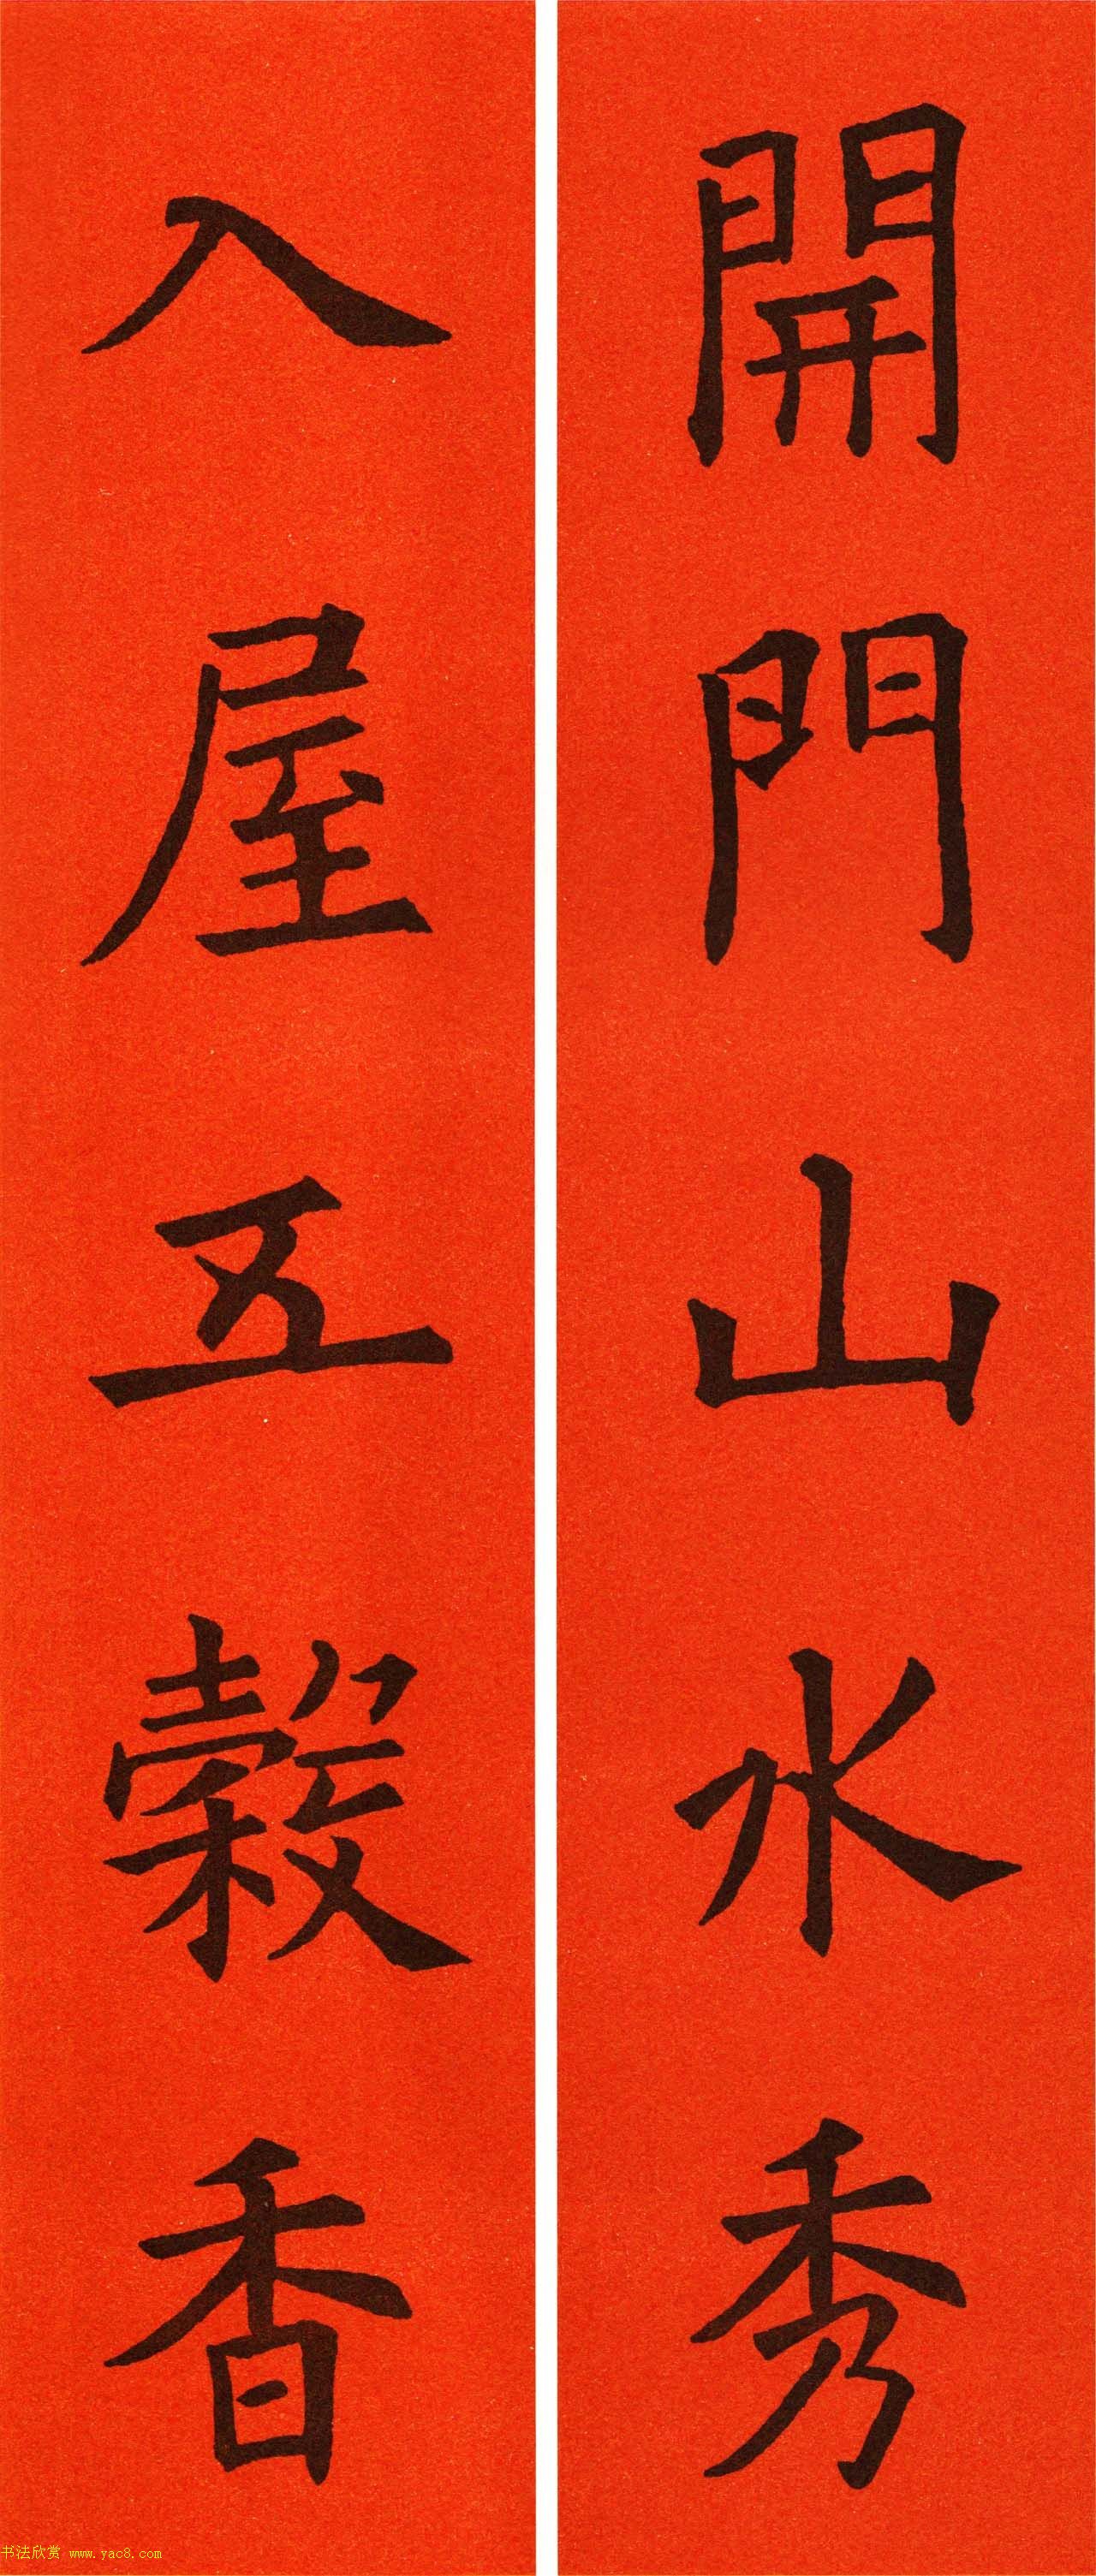 開門山水秀
入屋五穀香
书法欣赏 www.yac8.com